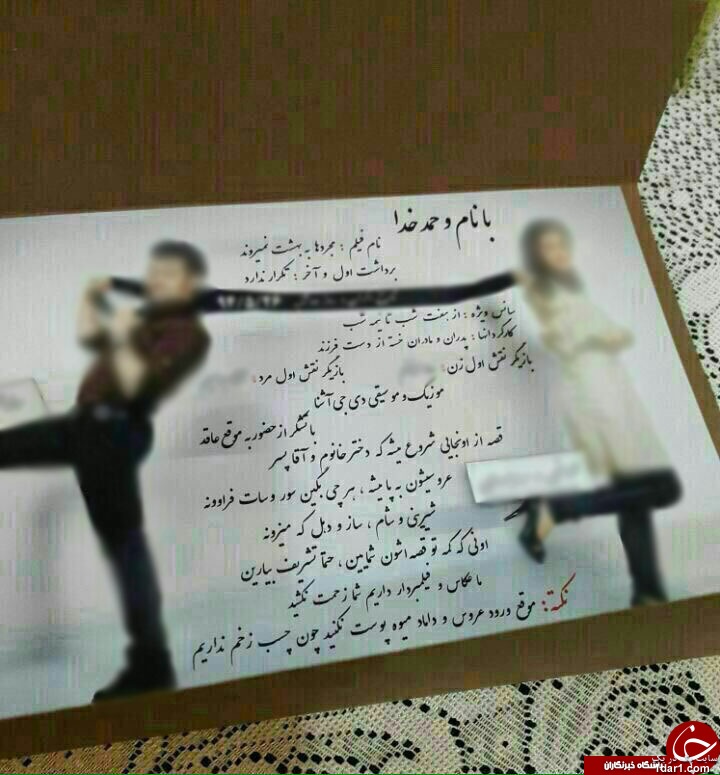 با نام و حمد خدا
نام فیلم : مجردها به بهشت نمیروند
برداشت اول و آخر : تکرار ندارد
سانس ویژه : از هفت شب تا نیمه شب
کارگردانها : پدران و مادران خسته از دست فرزند
بازیگر نقش اول زن: بازیگر نقش اول مرد:
موزیک و موسیقی دی جی آشنا
باتشکر از حضور به موقع عاقد
قصه از اونجایی شروع میشه که دختر خانوم و آقا پسر
عروسیشون به پا میشه ، هر چی بگین سور و سات فراوونه
شیرینی و شام ، ساز و دهل که میزنه
اونی که کمه تو قصه اشون شمایین ، حتما تشریف بیارین
ما عکاس و فیلمبردار داریم شما زحمت نکشید
نکته: موقع ورود عروس و داماد میوه پوست نکنید چون چسب زخم نداریم
باشگاه خبرنگاران